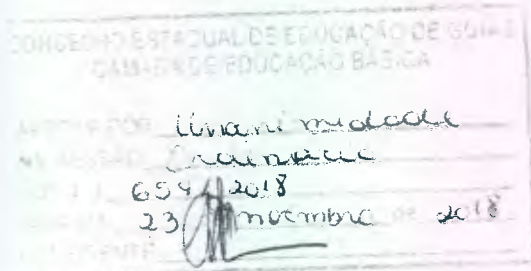 CONSELHO ESTADUAL DE EDUCAÇÃO DE GOIÁS
CÂMARA DE EDUCAÇÃO BÁSICA
POR unanimidade
NA SESSÃO Ordinária
659 / 2018
23 novembro de 2018
PRESIDENTE